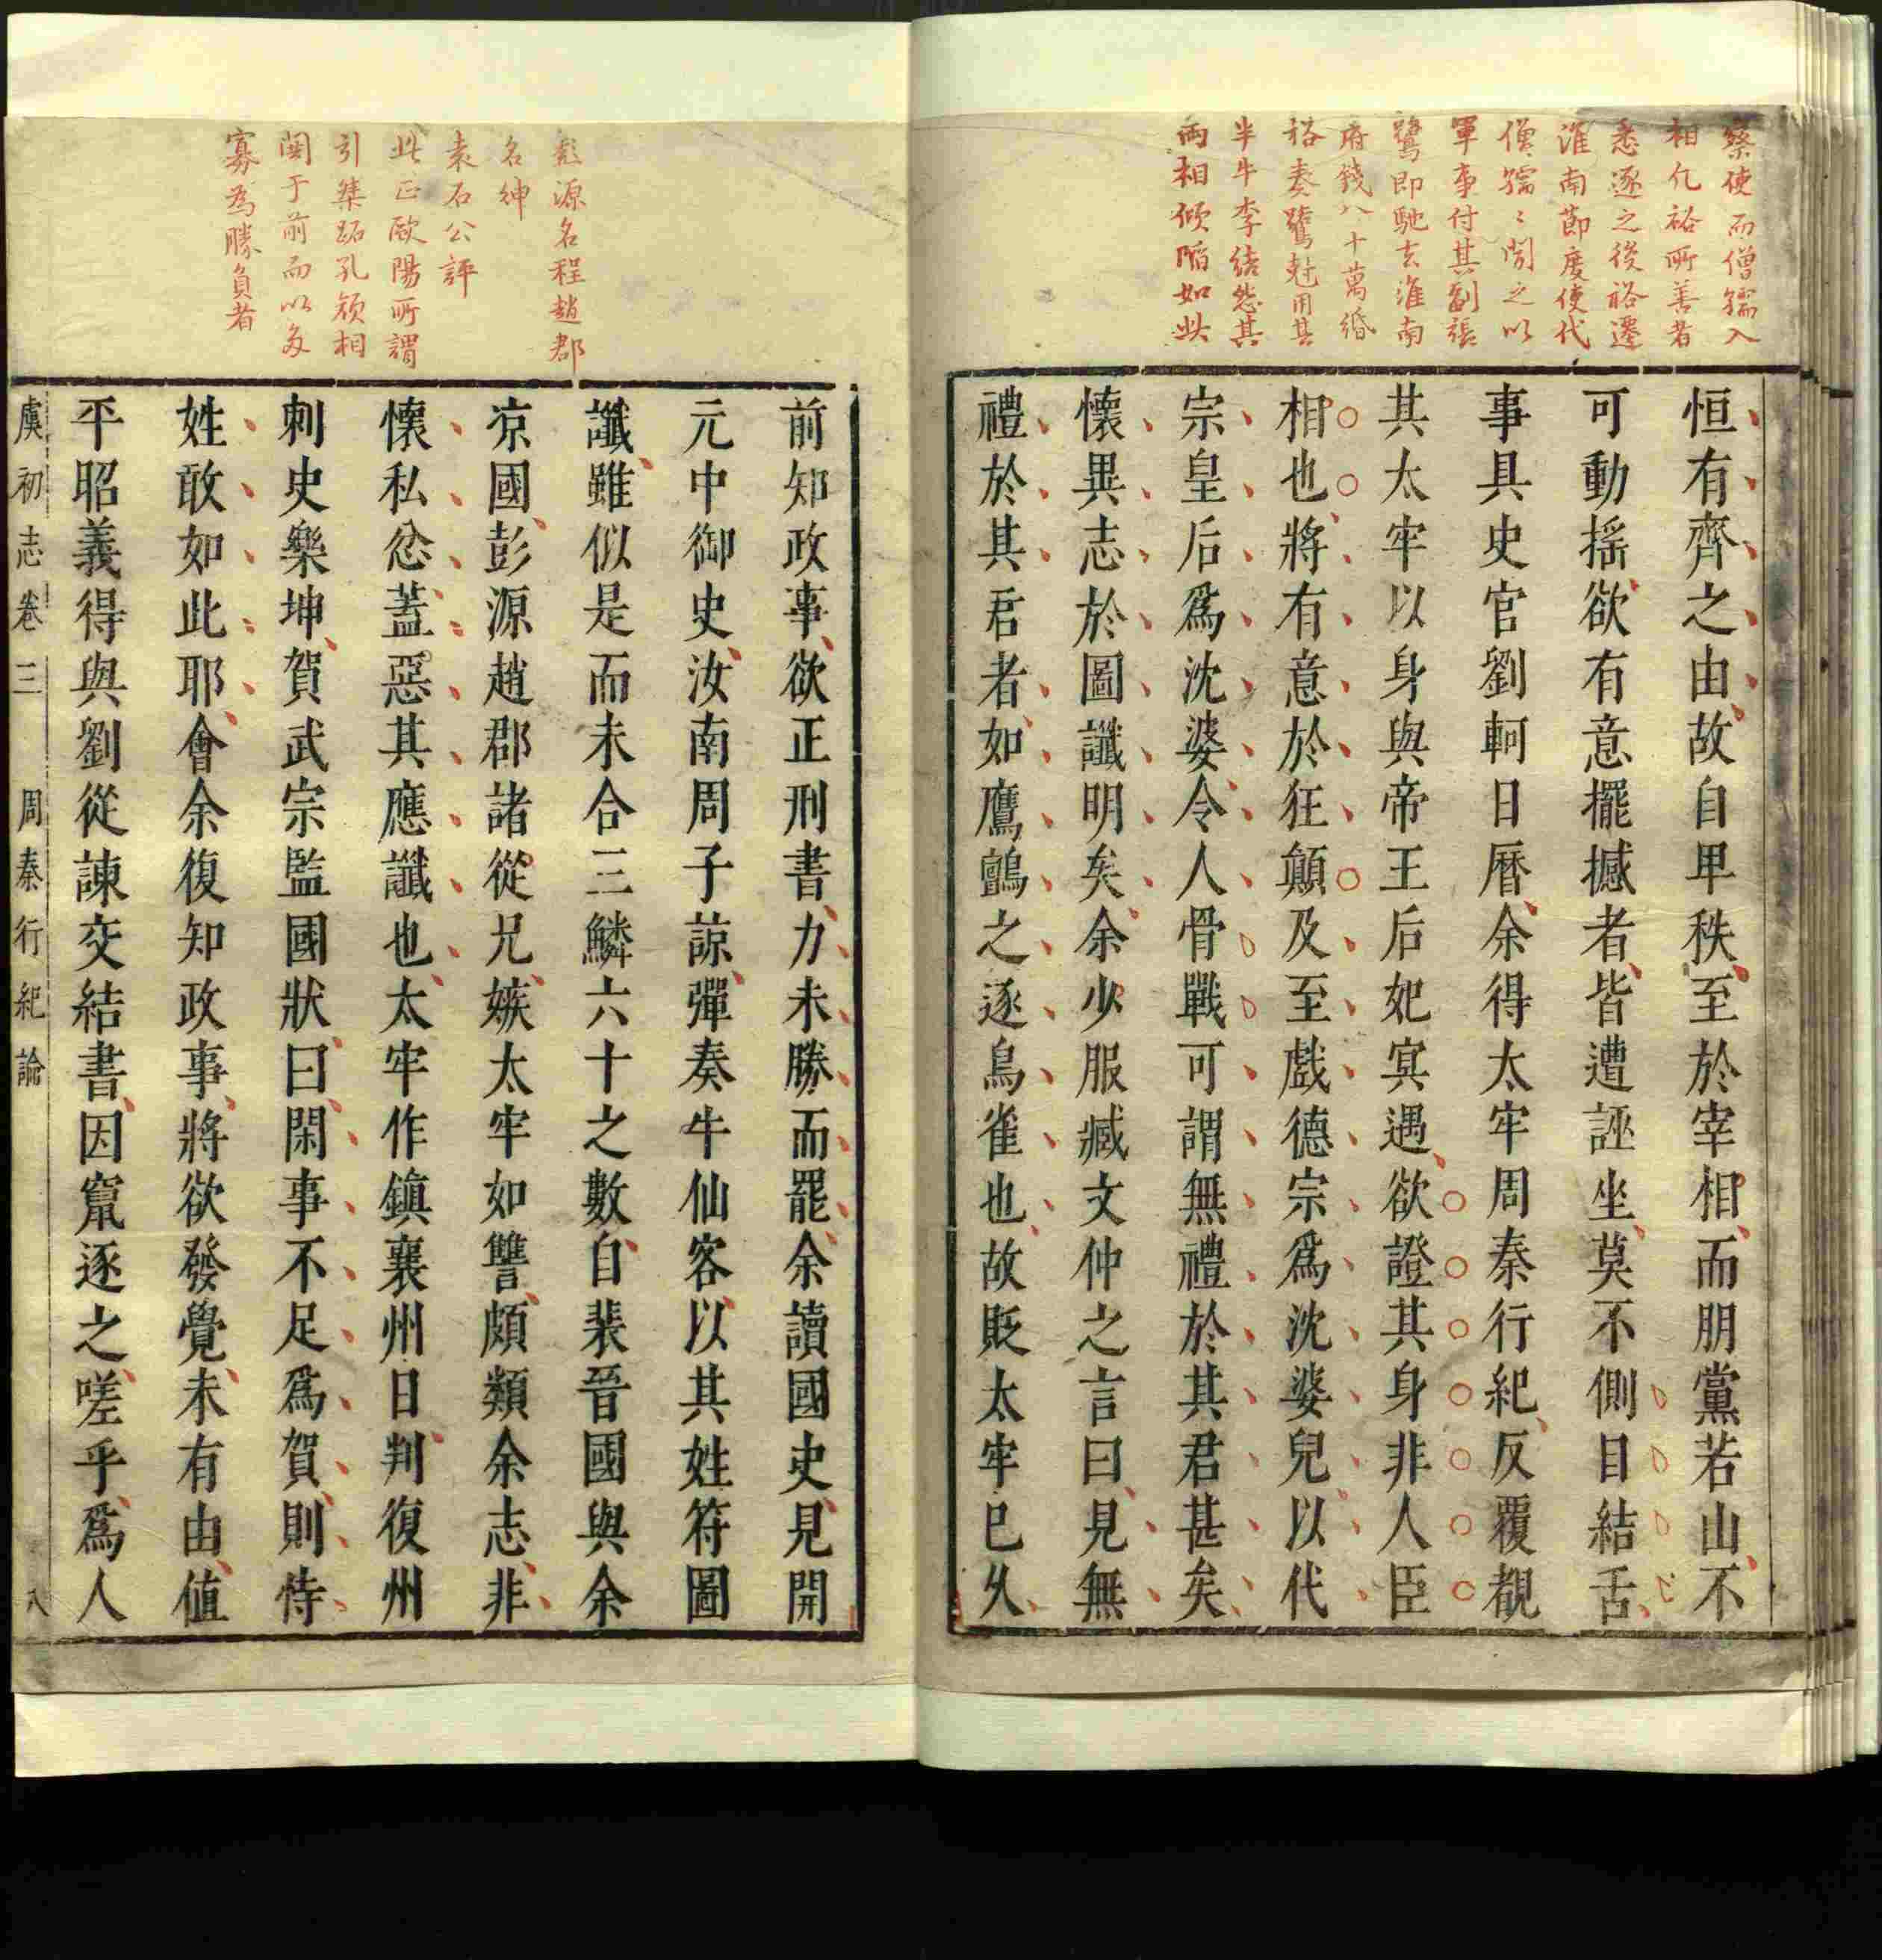 察使而僧孺入
相凡裕所善者
悉逐之後裕遷
淮南節度使代
僧孺〻聞之以
軍事付其副張
鷺即馳去淮南
府錢八十萬緡
裕奏鷺尅用其
半牛李結怨其
兩相傾陷如此
恒有齊之由故自甲秩至於宰相而朋黨若山不
可動搖欲有意擺撼者皆遭誣坐莫不側目結舌
事具史官劉軻日曆余得太牢周秦行紀反覆覩
其太牢以身與帝王后妃冥遇欲證其身非人臣
相也將有意於狂顛及至戲德宗爲沈婆兒以代
宗皇后爲沈婆令人骨戰可謂無禮於其君甚矣
懷異志於圖讖明矣余少服臧文仲之言曰見無
禮於其君者如鷹鸇之逐鳥雀也故貶太牢已久
彭源名程趙郡
名紳
袁石公評
此正歐陽所謂
引桀跖孔顔相
鬨于前而以多
寡為勝負者
前知政事欲正刑書力未勝而罷余讀國史見開
元中御史汝南周子諒彈奏牛仙客以其姓符圖
讖雖似是而未合三鱗六十之數自裴晉國與余
凉國彭源趙郡諸從兄嫉太牢如讐頗類余志非
懷私忿蓋惡其應讖也太牢作鎮襄州日判復州
刺史樂坤賀武宗監國狀曰閑事不足爲賀則恃
姓敢如此耶會余復知政事將欲發覺未有由值
平昭義得與劉從諫交結書因竄逐之嗟乎爲人
虞初志卷三 周秦行紀論 八